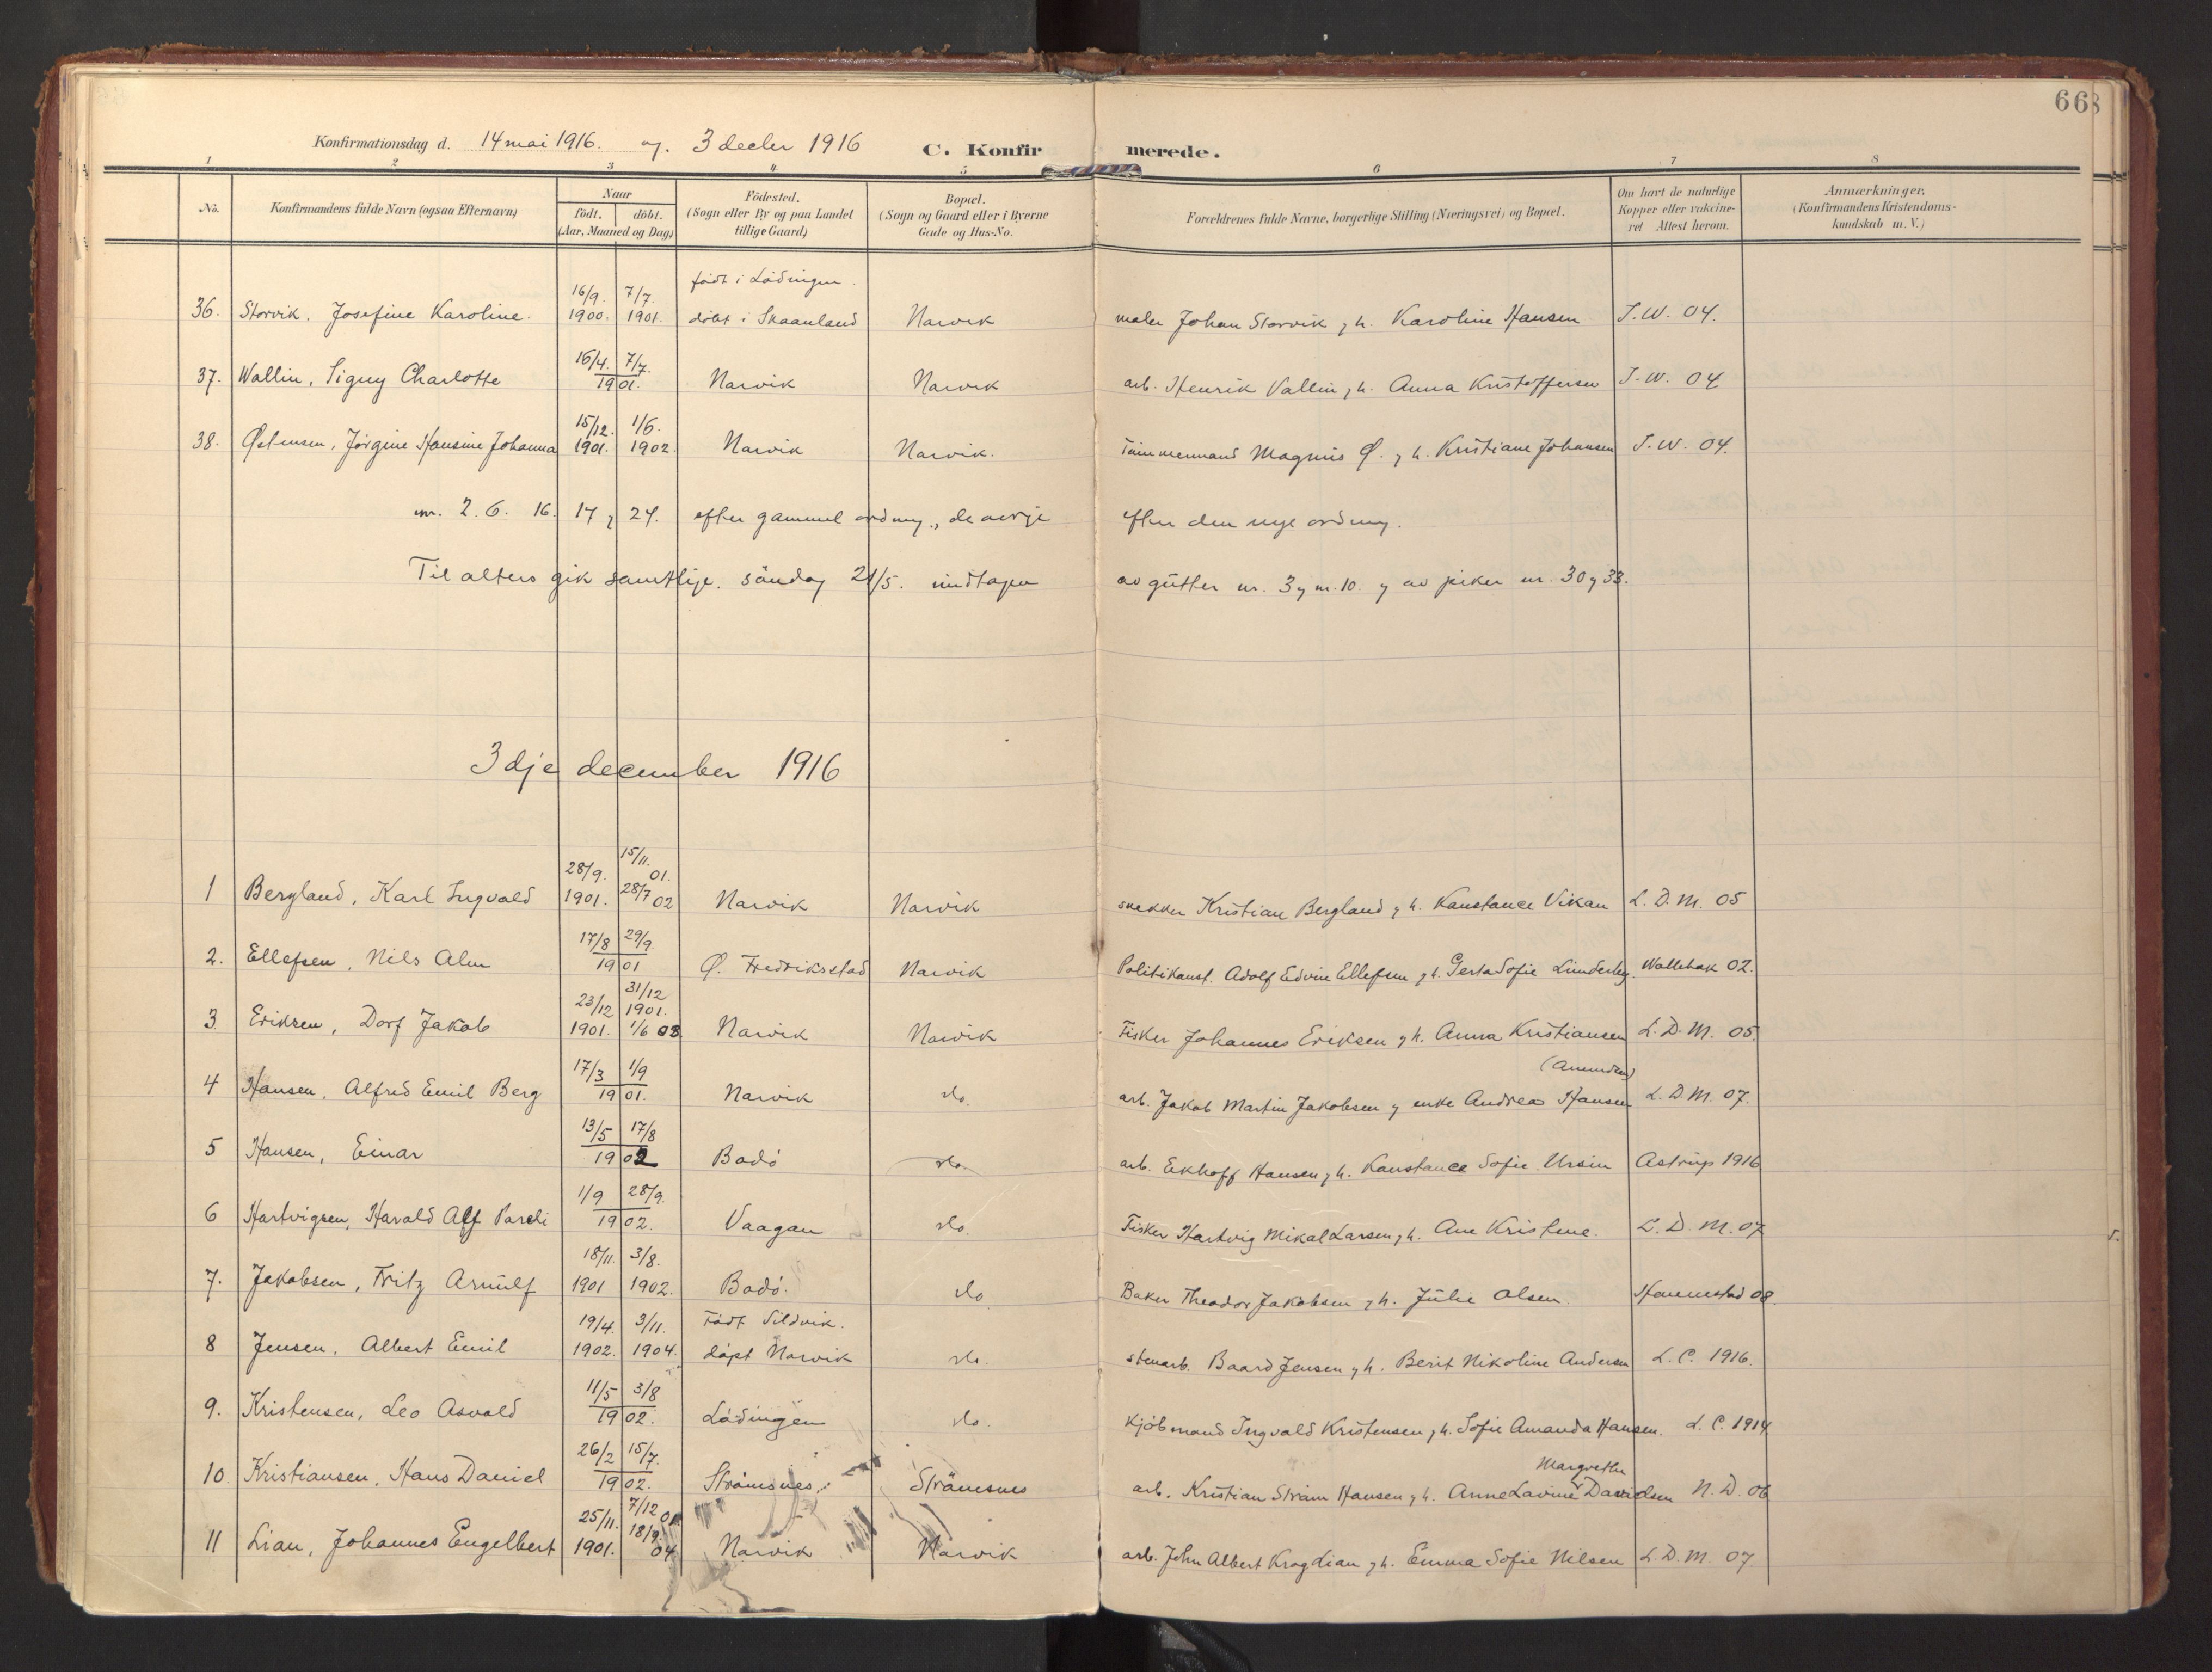 66
Konfirmationsdag d. 14 mai 1916. og. 3 decbr 1916 C. Konfirmerede.
1 2 3 4 5 6 7 8
No. Konfirmandens fulde Navn (ogsaa Efternavn) Naar født. døbt. (Aar, Maaned og Dag) Fødested. (Sogn eller By og paa Landet tillige Gaard) Bopæl. (Sogn og Gaard eller i Byerne Gade og Hus-No. Forældrenes fulde Navne, borgerlige Stilling (Næringsvei) og Bopæl. Om havt de naturlige Kopper eller vakcineret Attest herom. Anmærkninger. (Konfirmandens Kristendomskundskab m. V.)
36. Storvik, Josefine Karoline. 16/9. 1900. 7/7. 1901. født i Lødingen. døbt i Skaanland Narvik maler Johan Storvik g h. Karoline Hansen J. W. 04.
37. Wallin, Signy Charlotte 16/4. 7/7. 1901. Narvik Narvik arb. Henrik Vallin g h. Anna Kristoffersen J. W. 04
38. Østensen, Jørgine Hansine Johanna 15/12. 1901. 1/6. 1902 Narvik Narvik. Tømmermand Magnus Ø. g h. Kristiane Johansen J. W. 04.
nr. 2. 6. 16. 17 g 24. efter gammel ordning, de øvrige efter den nye ordning.
Til alters gik samtlige. søndag 21/5. undtagen av gutter nr. 3 g nr. 10. g av piker nr. 30 g 33.
3dje december 1916
1 Bergland, Karl Ingvald 28/9. 1901. 15/11. 01. 28/7 02 Narvik Narvik snekker Kristian Bergland g h. Konstance Vikan L. D. M. 05
2. Ellefsen, Nils Alm 17/8 29/9. 1901 Ø. Fredriksstad Narvik Politikonst. Adolf Edvin Ellefsen g h. Gerta Sofie Wallebak 02.
3 Eriksen, Dorf Jakob 23/12 1901. 31/12 1901. 1/6 03 Narvik Narvik Fisker Johannes Eriksen g h. Anna Kristiansen L. D. M. 05.
4 Hansen, Alfred Emil Berg 17/3 1/9 1901. Narvik do. arb. Jakob Martin Jakobsen g enke Andrea Hansen L. D. M. 07.
5 Hansen, Einar 13/5 17/8 1902 Bodø do. arb. Ekhoff Hansen g h. Konstance Sofie Ursin Astrup 1916
6 Hartvigsen, Harald Alf Pareli 1/9 28/9. 1902. Vaagan do. Fisker Hartvig Mikal Larsen g h. Ane Kristine. L. D. M. 07
7. Jakobsen, Fritz Arnulf 18/11. 1901 3/8. 1902. Bodø. do Baker Theodor Jakobsen g h. Julie Olsen. Hammerstad 08.
8 Jensen, Albert Emil 19/4. 1902. 3/11. 1904. Født Sildvik. døpt Narvik do. stenarb. Baard Jensen g h. Berit Nikoline Andersen L. C. 1916.
9. Kristensen, Leo Asvald 11/5 3/8 1902. Lødingen do. Kjøbmand Ingvald Kristensen g h. Sofie Amanda Hansen. L. C. 1914
10. Kristiansen, Hans Daniel 26/2 15/7. 1902. Strømsnes. Strømsnes arb. Kristian Strøm Hansen g h. Anne Lavine Margrethe Davidsen N. D. 06
11 Lian, Johannes Engelbert 25/11. 1901. 7/12 01. 18/9. 04 Narvik Narvik arb. John Albert Krog Lian g h. Emma Sofie Nilsen L. D. M. 07.